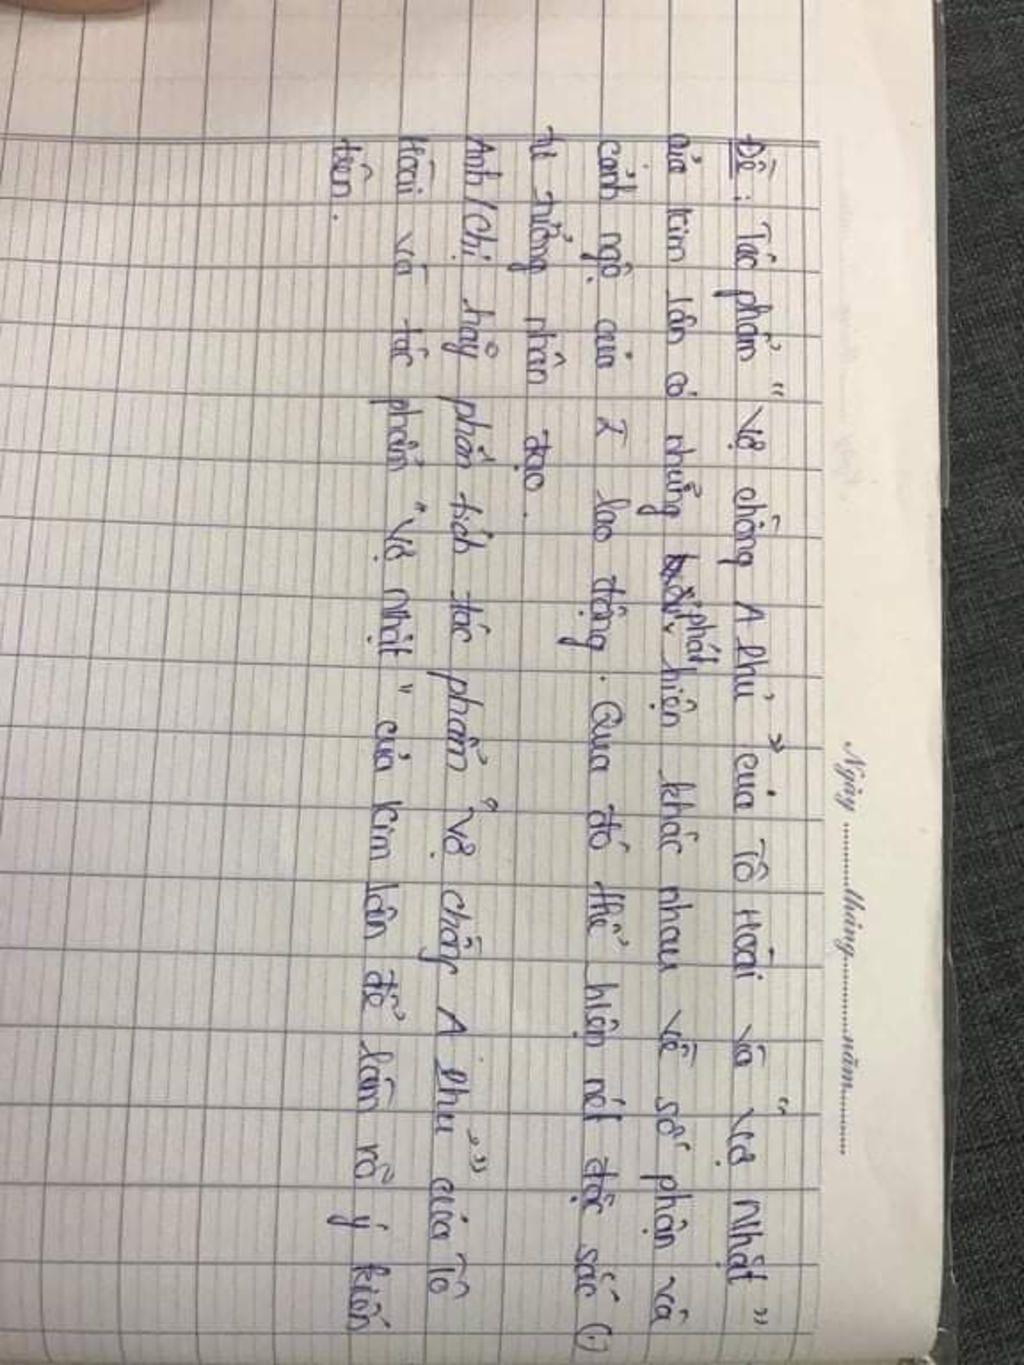 Ngày ............tháng............năm............
Đề : Tác phẩm " Vợ chồng A Phủ " của Tô Hoài và " Vợ nhặt "
của Kim Lân có những phát hiện khác nhau về số phận và
cảnh ngộ của 2 lao động. Qua đó thể hiện nét đặc sắc (.)
tư tưởng nhân đạo.
Anh / Chị hãy phân tích tác phẩm " Vợ chồng A Phủ " của Tô
Hoài và tác phẩm " Vợ nhặt " của Kim Lân để làm rõ ý kiến
trên.